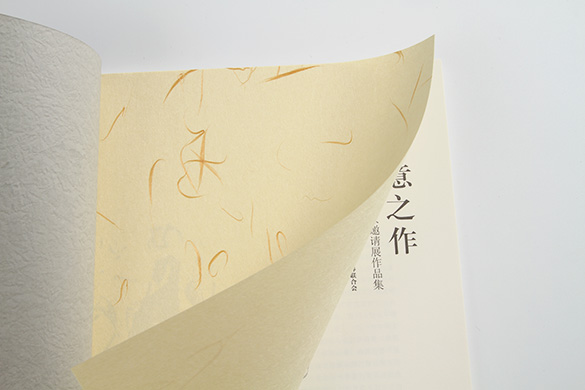 意之作
邀请展作品集
联合会